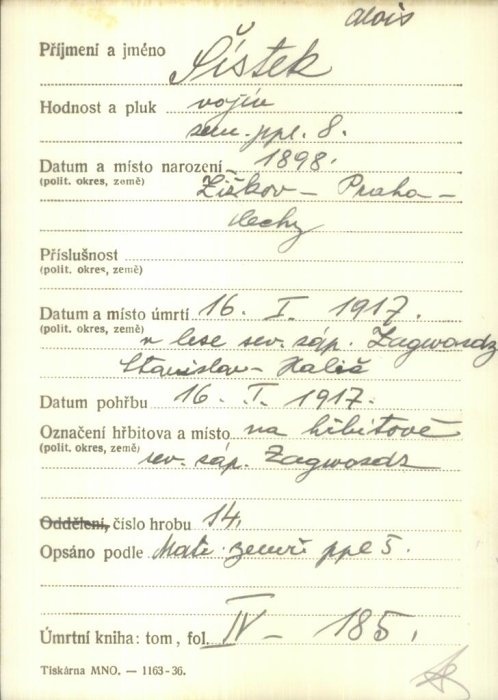 Alois
Příjmení a jméno Šístek
Hodnost a pluk vojín
zem. ppl. 8.
Datum a místo narození 1898.
(polit. okres, země) Žižkov – Praha –
Čechy
Příslušnost
(polit. okres, země)
Datum a místo úmrtí 16. I. 1917.
(polit. okres, země) v lese sev. záp. Zagwosdz
Stanislav – Halič
Datum pohřbu 16. I. 1917.
Označení hřbitova a místo na hřbitově
(polit. okres, země) sev. záp. Zagwosdz
Oddělení, číslo hrobu 14.
Opsáno podle Mat. zemř. ppl 5.
Úmrtní kniha: tom, fol. IV – 185.
Tiskárna MNO. — 1163-36.